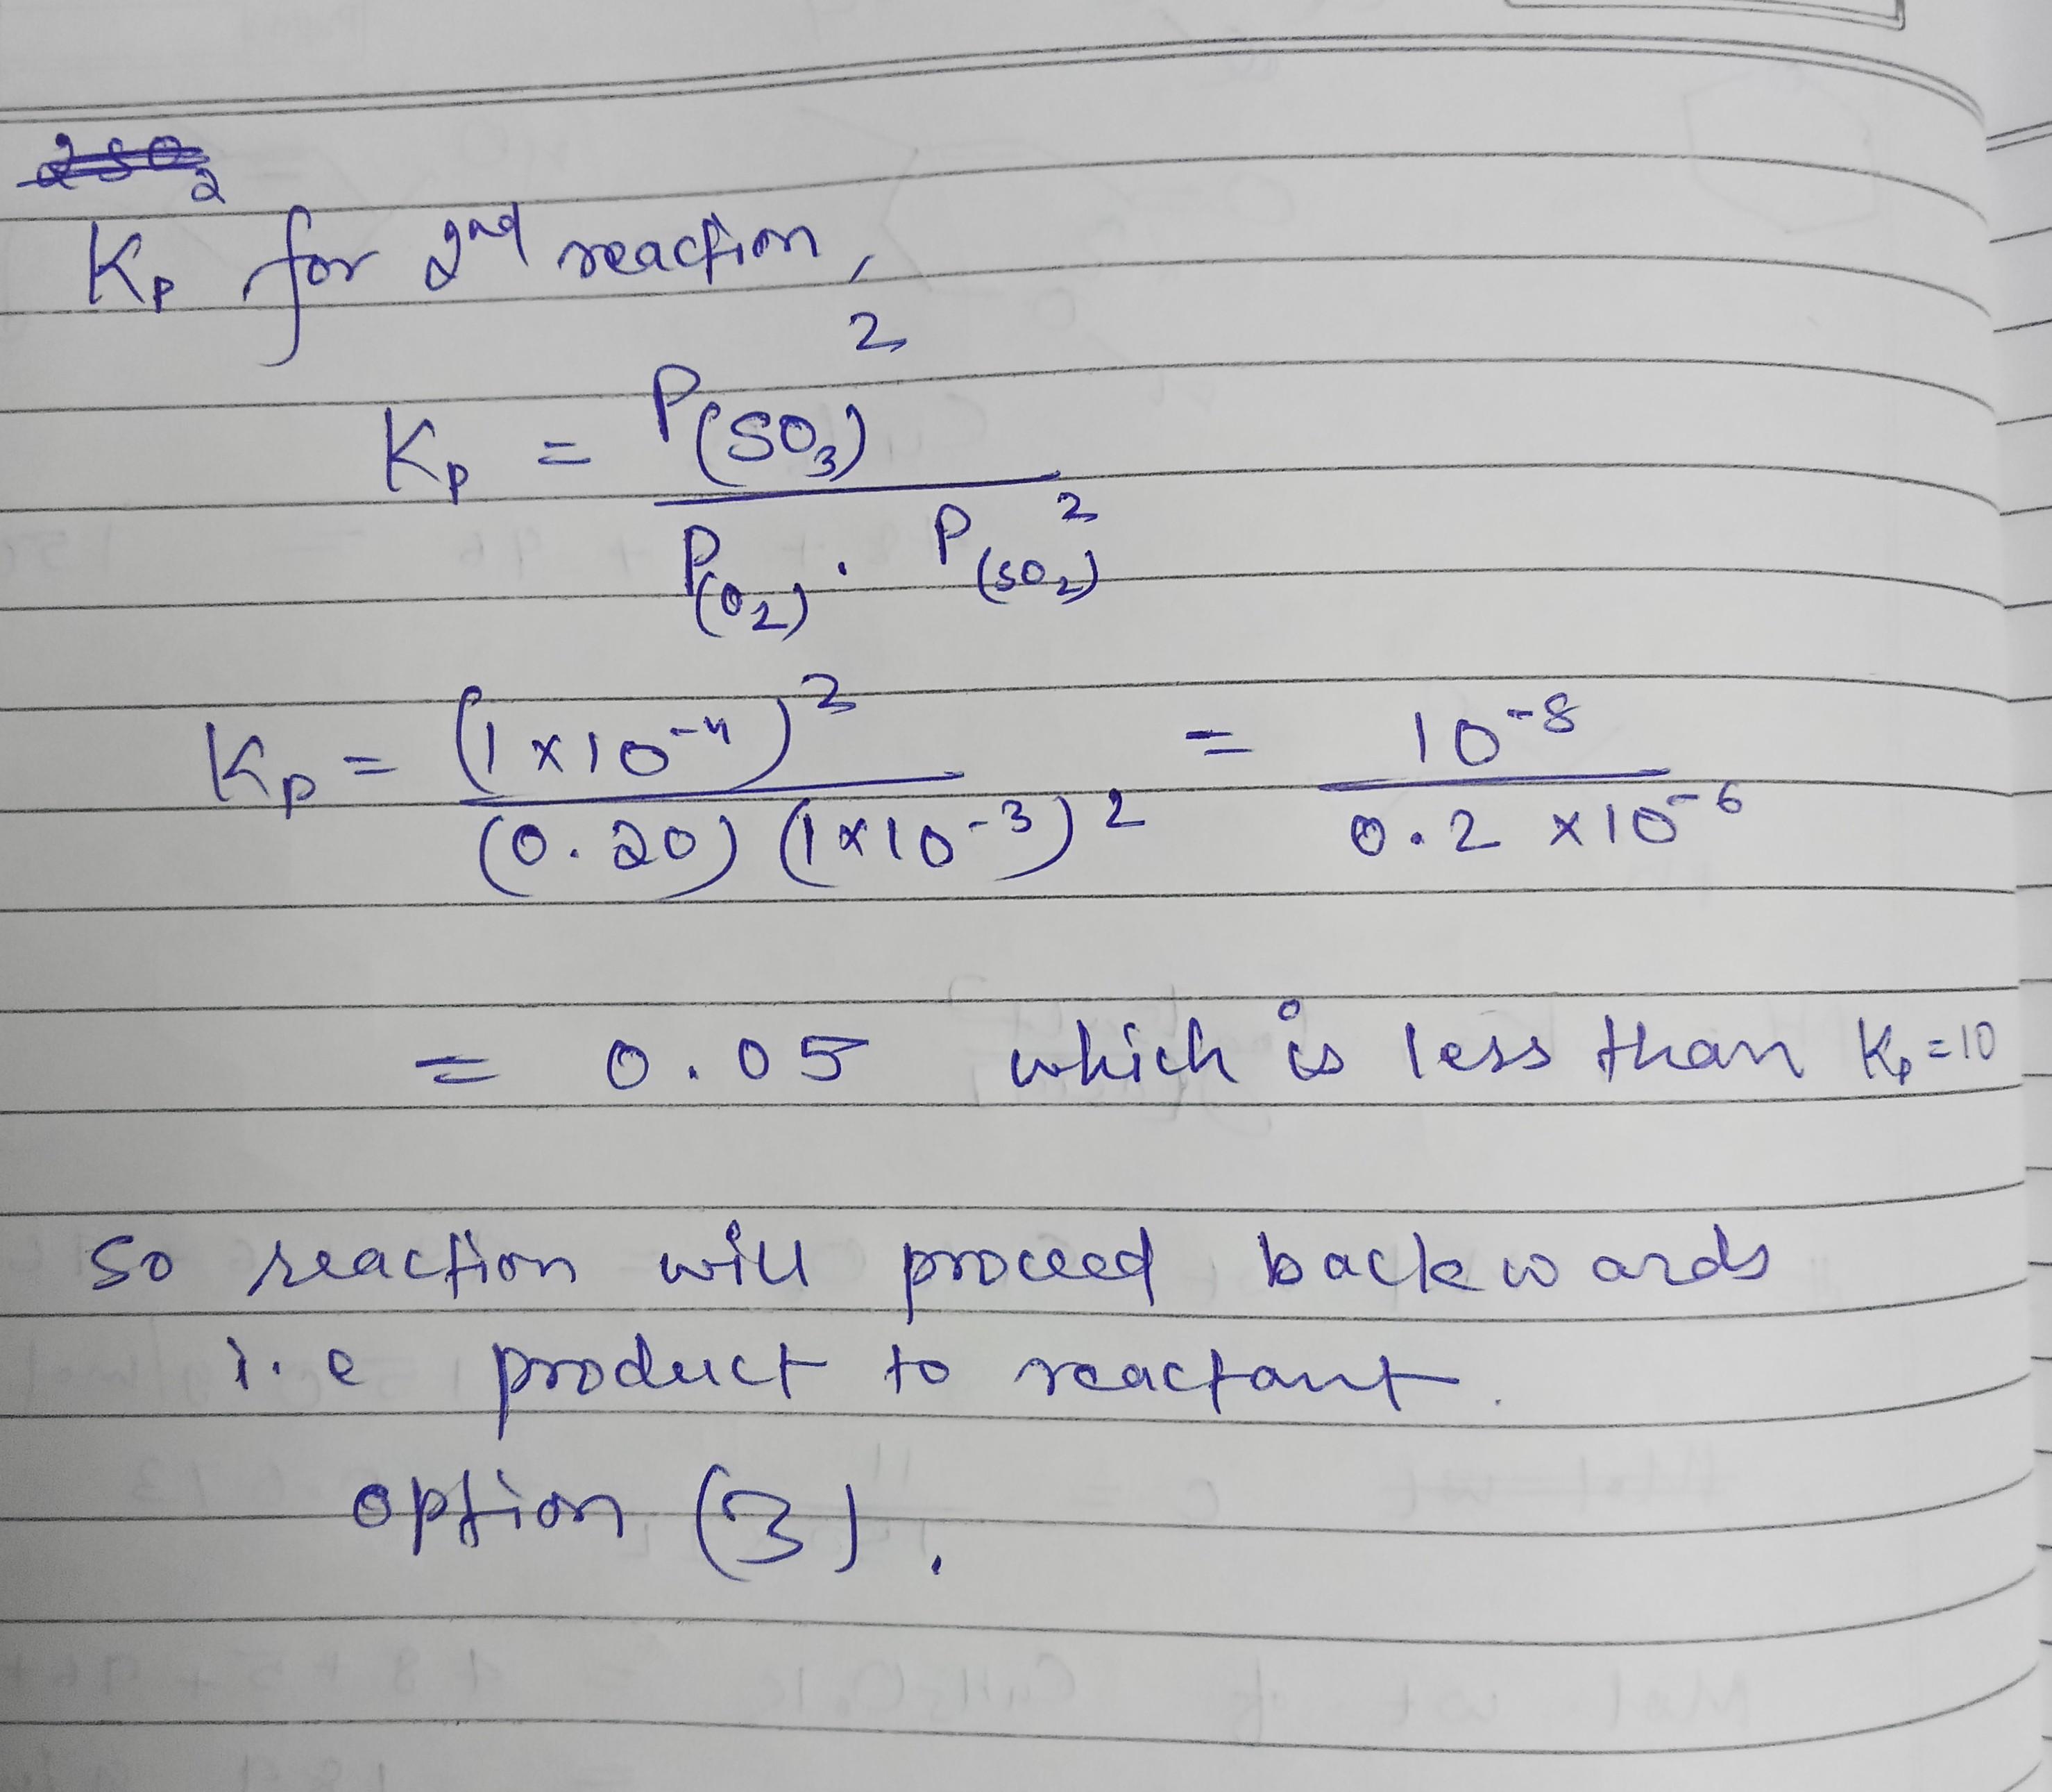 2SO₂
Kp for 2nd reaction,
Kp = P(SO₃)² / P(O₂) · P(SO₂)²
Kp = (1×10⁻⁴)² / (0.20) (1×10⁻³)² = 10⁻⁸ / 0.2 ×10⁻⁶
= 0.05 which is less than Kp=10
So reaction will proceed backwards
i.e product to reactant.
option (3).